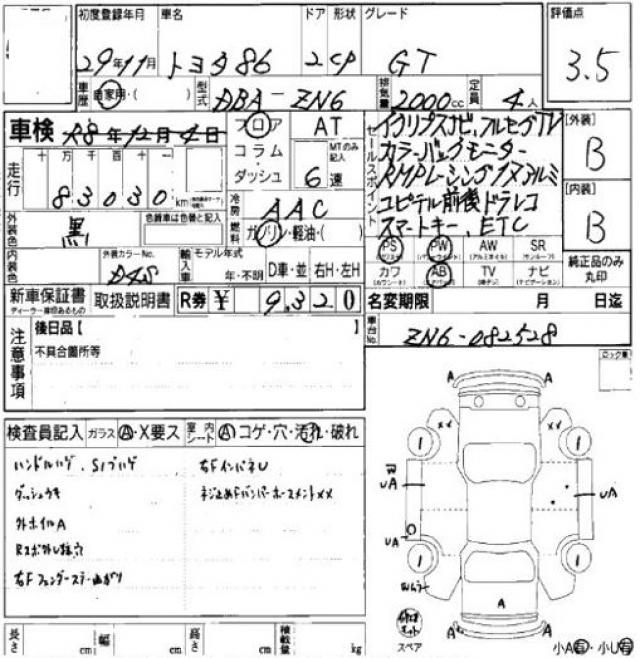 初度登録年月 車名 ドア 形状 グレード 評価点
29年11月 トヨタ86 2 CP GT 3.5
車歴 自家用・( ) 型式 DBA-ZN6 排気量 2000cc 定員 4人
車検 R8年12月4日 フロア AT
コラム MTのみ記入
ダッシュ 6速
走行 十 万 千 百 十 一
83030 km
セールスポイント
イクリプスナビ、フルセグTV
カラーバックモニター
RMPレーシング17アルミ
ユピテル前後ドラレコ
スマートキー、ETC
[外装] B
[内装] B
冷房 AAC
外装色 黒 色替車は色替と記入 燃料 ガソリン・軽油・( )
PS PW AW SR
(アルミホイル) (サンルーフ)
カワ AB TV ナビ
(ナビゲーション)
純正品のみ丸印
内装色 外装カラーNo. D4S 輸入車 モデル年式 年・不明 D車・並 右H・左H
新車保証書 取扱説明書 R券 ¥ 9,320 名変期限 月 日迄
ディーラー捺印あるもの
車台No. ZN6-082528
注意事項
後日品【 】
不具合箇所等
ロック車
検査員記入 ガラス A・X要ス 室内シート A コゲ・穴・汚れ・破れ
ハンドルハゲ、S/ブハゲ 右FインパネU
ダッシュウキ ネジ止めFバンパーホースメントXX
外ホイルA
右Fフェンダーステー曲がり
A A
XX XX
1 1
W
UA UA
UA
1 1
A
A A
スペア
小A有・小U有
長さ cm 幅 cm 高さ cm 積載量 kg